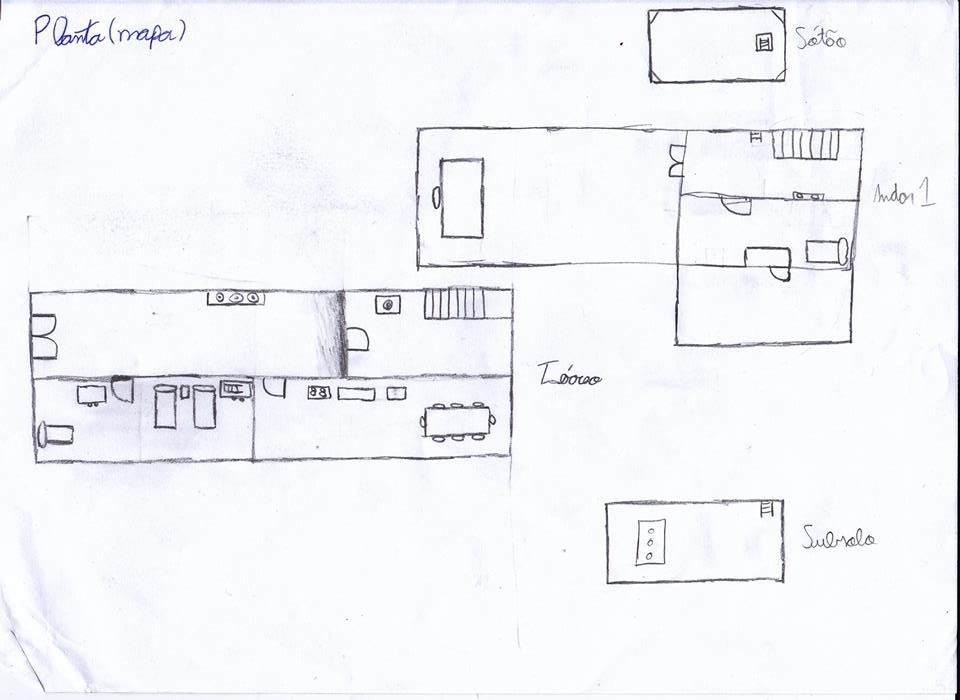 Planta (mapa)
Sótão
Andar 1
Térreo
Subsolo